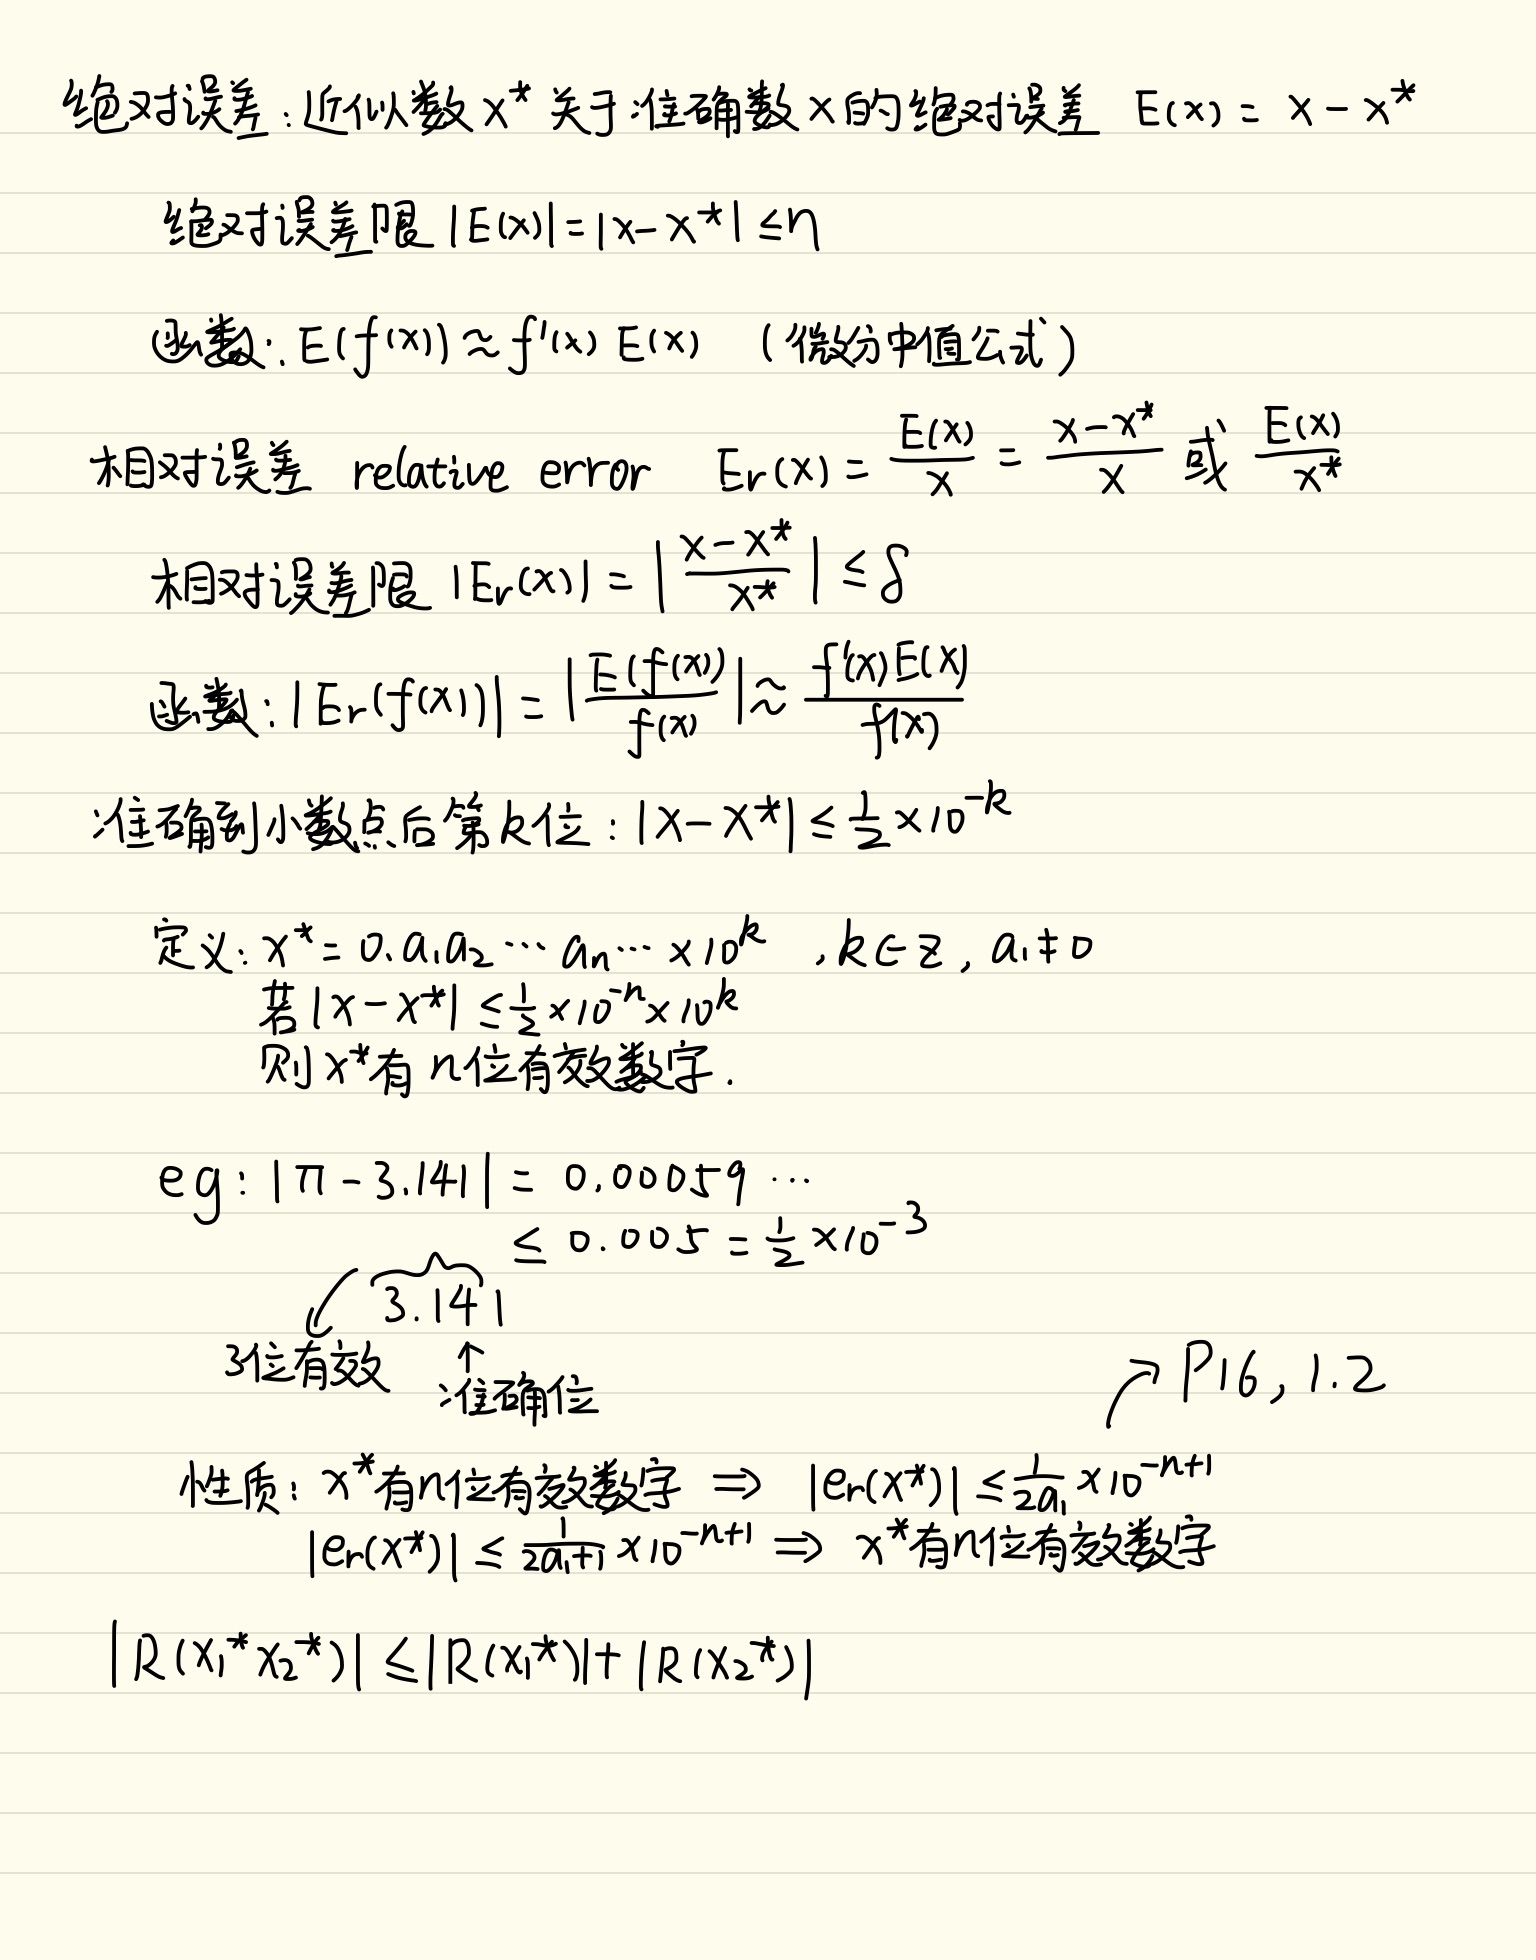 绝对误差：近似数 x* 关于准确数 x 的绝对误差 E(x) = x - x*
绝对误差限 |E(x)| = |x - x*| ≤ η
函数：E(f(x)) ≈ f'(x) E(x) （微分中值公式）
相对误差 relative error Er(x) = E(x)/x = (x - x*)/x 或 E(x)/x*
相对误差限 |Er(x)| = |(x - x*)/x*| ≤ δ
函数：|Er(f(x))| = |E(f(x))/f(x)| ≈ f'(x)E(x)/f(x)
准确到小数点后第k位：|x - x*| ≤ 1/2 × 10^{-k}
定义：x* = 0.a₁a₂⋯aₙ⋯ × 10^k , k ∈ Z, a₁ ≠ 0
若 |x - x*| ≤ 1/2 × 10^{-n} × 10^k
则 x* 有 n位有效数字.
eg: |π - 3.141| = 0.00059 ⋯
≤ 0.005 = 1/2 × 10^{-3}
3.141
3位有效 ↑
准确位
P16, 1.2
性质：x* 有n位有效数字 ⇒ |er(x*)| ≤ 1/(2a₁) × 10^{-n+1}
|er(x*)| ≤ 1/(2a₁+1) × 10^{-n+1} ⇒ x* 有n位有效数字
|R(x₁*x₂*)| ≤ |R(x₁*)| + |R(x₂*)|